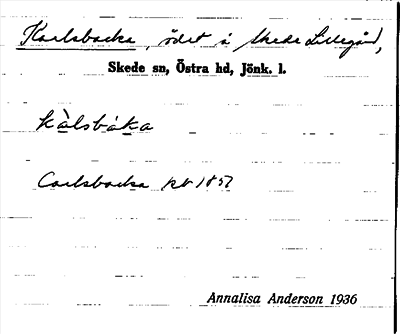 Karlsbacka, ödet å Skede Lillegård,
Skede sn, Östra hd, Jönk. l.
kàlsbáka
Carlsbacka kb 1857
Annalisa Anderson 1936